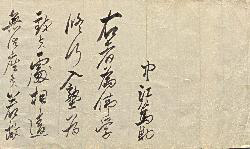 中江篤助
右者為佛学
修行入塾為
致候處相違
無御座候若故